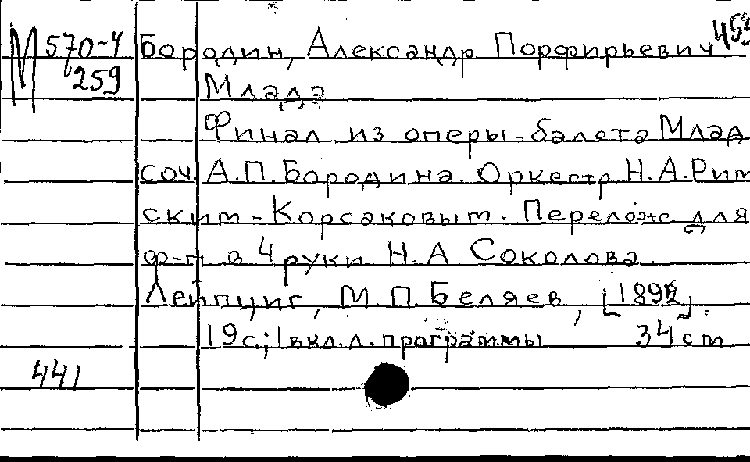 М 570-4 Бородин, Александр Порфирьевич
259 Млада
Финал из оперы-балета Млад
соч. А.П. Бородина. Оркестр. Н.А. Рим
ским-Корсаковым. Перелож. для
ф-п. в 4 руки Н.А Соколова.
Лейпциг, М.П. Беляев, [1892].
19 с.; 1 вкл. л. программы 34 cm
441